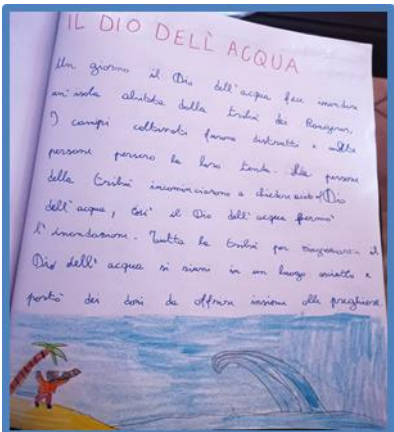 IL DIO DELL' ACQUA
Un giorno il Dio dell'acqua fece inondare
un'isola abitata dalla tribù dei
I campi coltivati furono distrutti e molte
persone persero la loro tenda. Le persone
della tribù incominciarono a chiedere aiuto al Dio
dell'acqua, così il Dio dell'acqua fermò
l'inondazione. Tutta la tribù per ringraziare il
Dio dell'acqua si riunì in un luogo e
portò dei doni da offrire insieme alle preghiere.